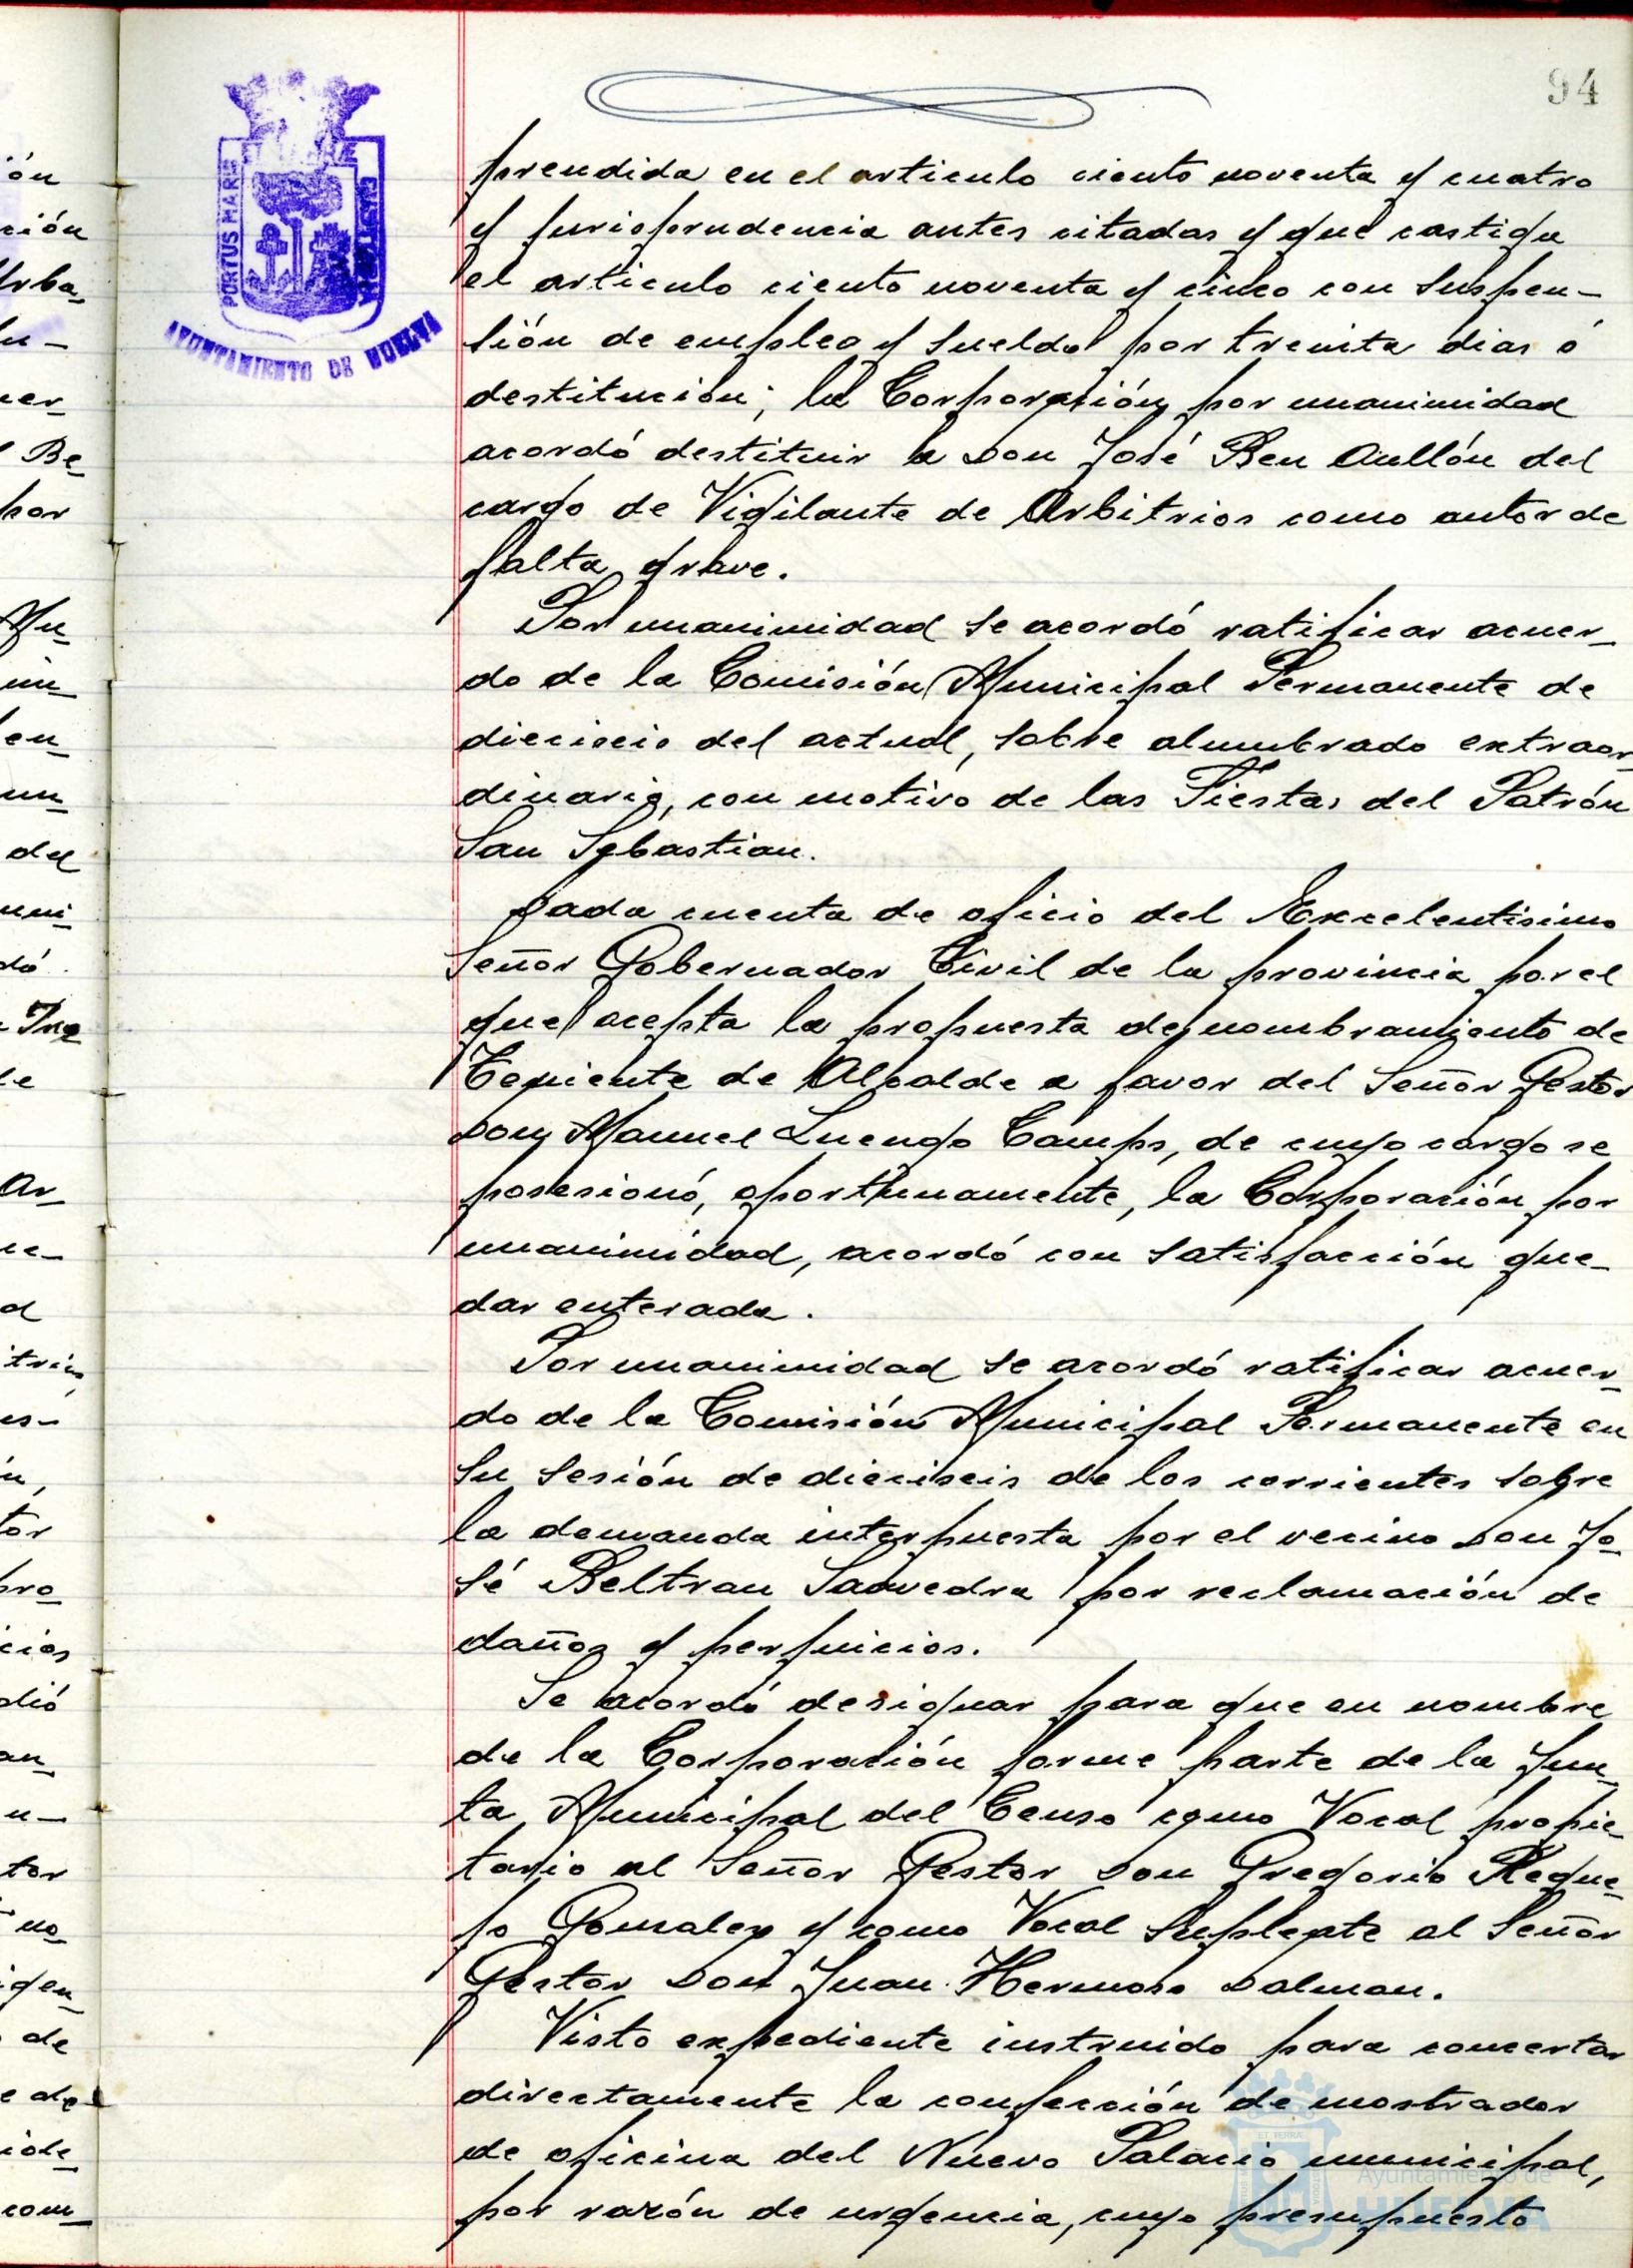 94
PORTUS MARIS
ET TERRÆ
CUSTODIA
AYUNTAMIENTO DE HUELVA
prendida en el articulo ciento noventa y cuatro
y jurisprudencia antes citadas y que castiga
el articulo ciento noventa y cinco con suspen-
sión de empleo y sueldo por treinta dias ó
destitución; la Corporación por unanimidad
acordó destituir a Don José Ben Aullón del
cargo de Vigilante de Arbitrios como autor de
falta grave.
Por unanimidad se acordó ratificar acuer-
do de la Comisión Municipal Permanente de
dieciocio del actual, sobre alumbrado extraor-
dinario, con motivo de las Fiestas del Patrón
San Sebastian.
Dada cuenta de oficio del Excelentisimo
Señor Gobernador Civil de la provincia por el
que acepta la propuesta de nombramiento de
Teniente de Alcalde a favor del Señor Gestor
Don Manuel Luengo Camps, de cuyo cargo se
posesionó, oportunamente, la Corporación por
unanimidad, acordó con satisfacción que-
dar enterada.
Por unanimidad se acordó ratificar acuer-
do de la Comisión Municipal Permanente en
su sesión de dieciseis de los corrientes sobre
la demanda interpuesta por el vecino Don Jo-
sé Beltran Saavedra por reclamación de
daños y perjuicios.
Se acordó designar para que en nombre
de la Corporación forme parte de la Jun-
ta Municipal del Censo como Vocal propie-
tario al Señor Gestor Don Gregorio Reque-
jo Gonzalez y como Vocal Suplente al Señor
Gestor Don Juan Hermoso Dalman.
Visto expediente instruido para concertar
directamente la confección de mostrador
de oficina del Nuevo Palacio municipal,
por razón de urgencia, cuyo presupuesto
Ayuntamiento de
HUELVA